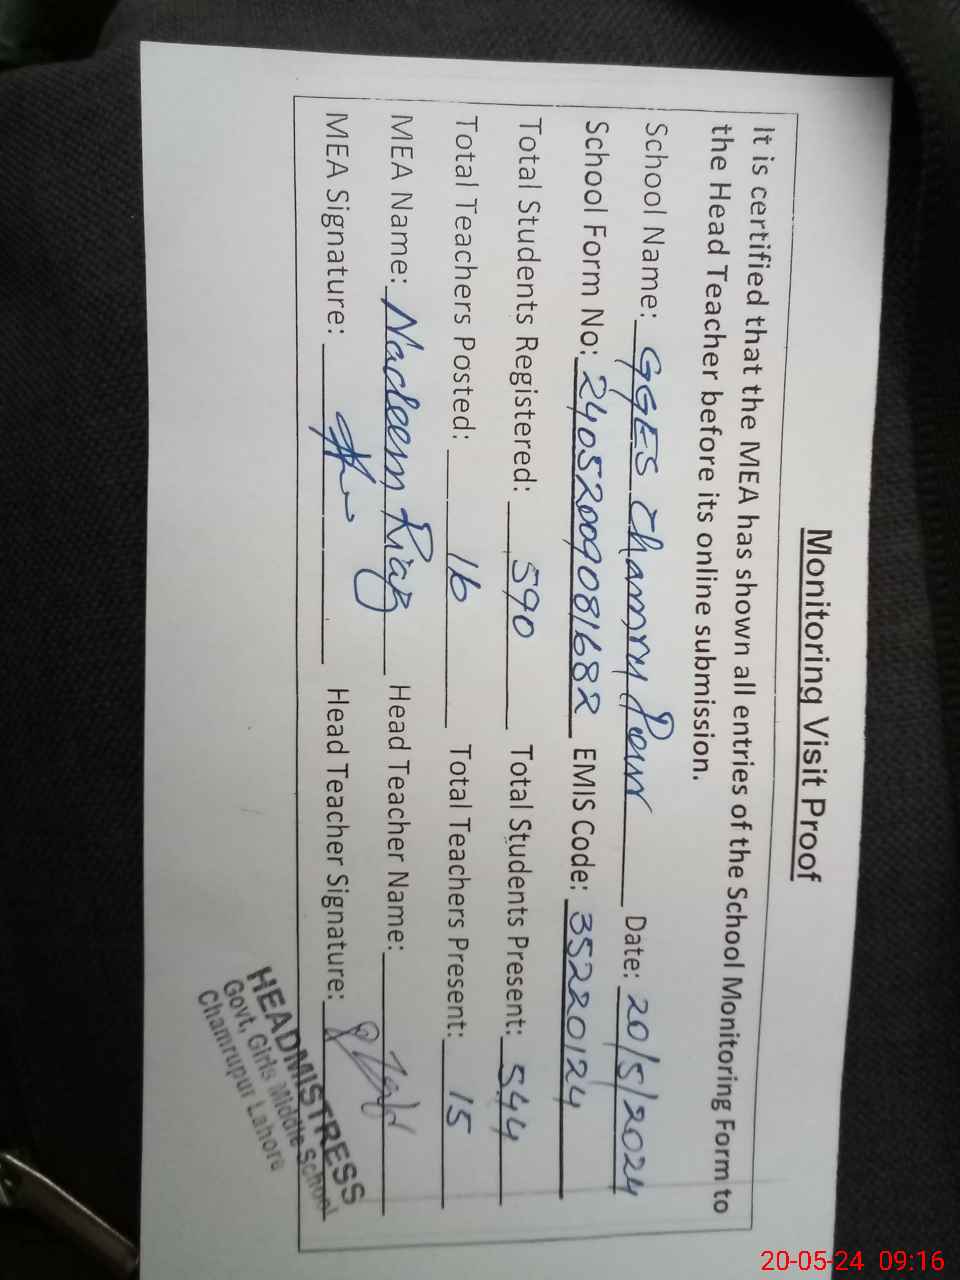 Monitoring Visit Proof
It is certified that the MEA has shown all entries of the School Monitoring Form to
the Head Teacher before its online submission.
School Name: GGES Chamru Pour Date: 20/5/2024
School Form No: 24052009081682 EMIS Code: 35220124
Total Students Registered: 590 Total Students Present: 544
Total Teachers Posted: 16 Total Teachers Present: 15
MEA Name: Nadeem Riaz Head Teacher Name:
MEA Signature: Head Teacher Signature:
HEADMISTRESS
Govt, Girls Middle School
Chamrupur Lahore
20-05-24 09:16